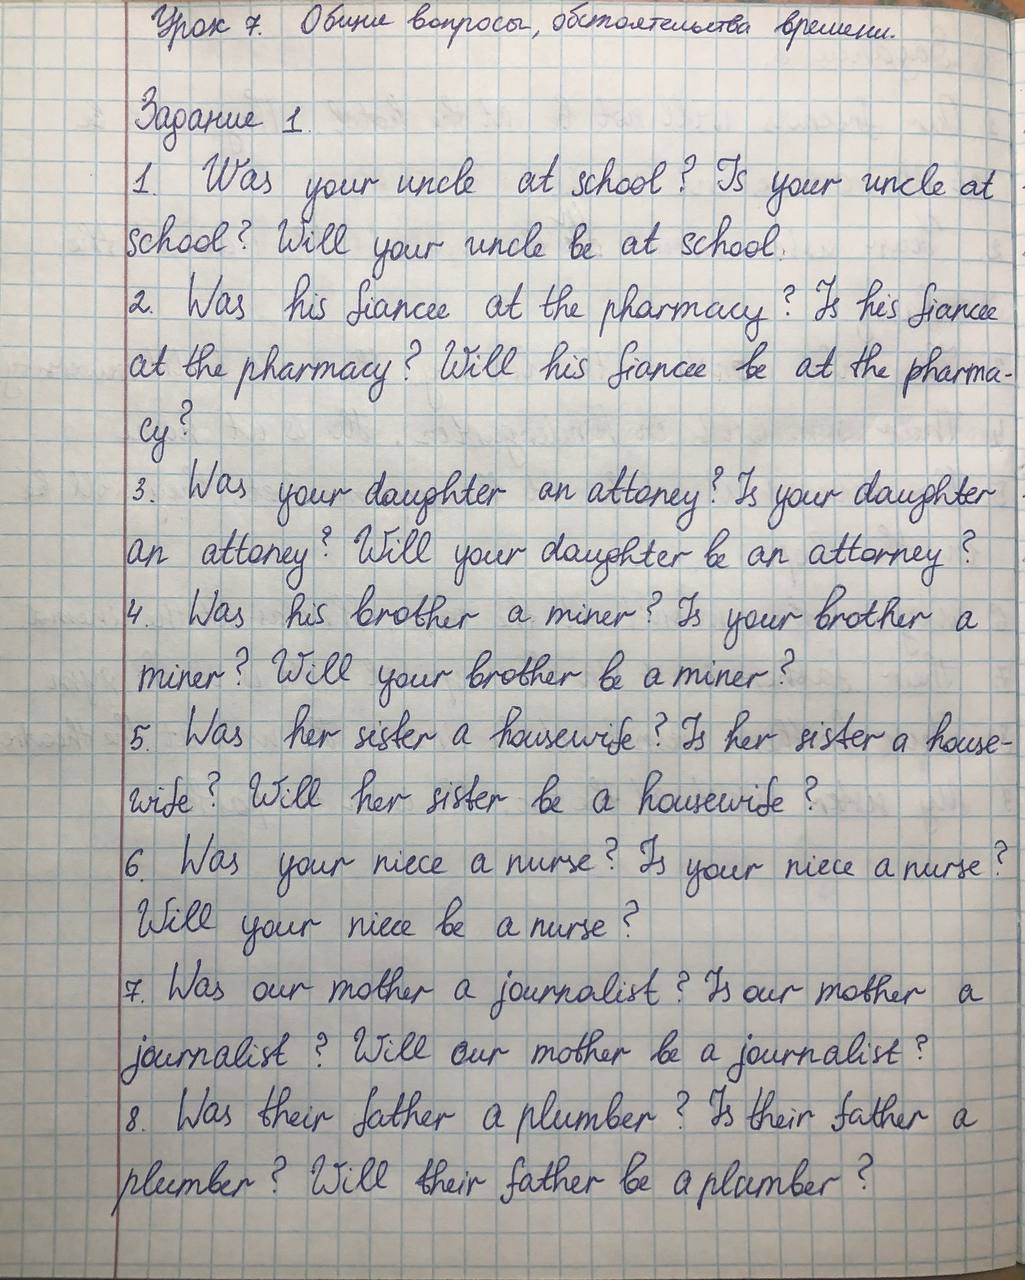 Урок 7. Общие вопросы, обстоятельства времени.
Задание 1.
1. Was your uncle at school? Is your uncle at
school? Will your uncle be at school.
2. Was his fiancee at the pharmacy? Is his fiancee
at the pharmacy? Will his fiancee be at the pharma-
cy?
3. Was your daughter an attoney? Is your daughter
an attoney? Will your daughter be an attorney?
4. Was his brother a miner? Is your brother a
miner? Will your brother be a miner?
5. Was her sister a housewife? Is her sister a house-
wife? Will her sister be a housewife?
6. Was your niece a nurse? Is your niece a nurse?
Will your niece be a nurse?
7. Was our mother a journalist? Is our mother a
journalist? Will our mother be a journalist?
8. Was their father a plumber? Is their father a
plumber? Will their father be a plumber?